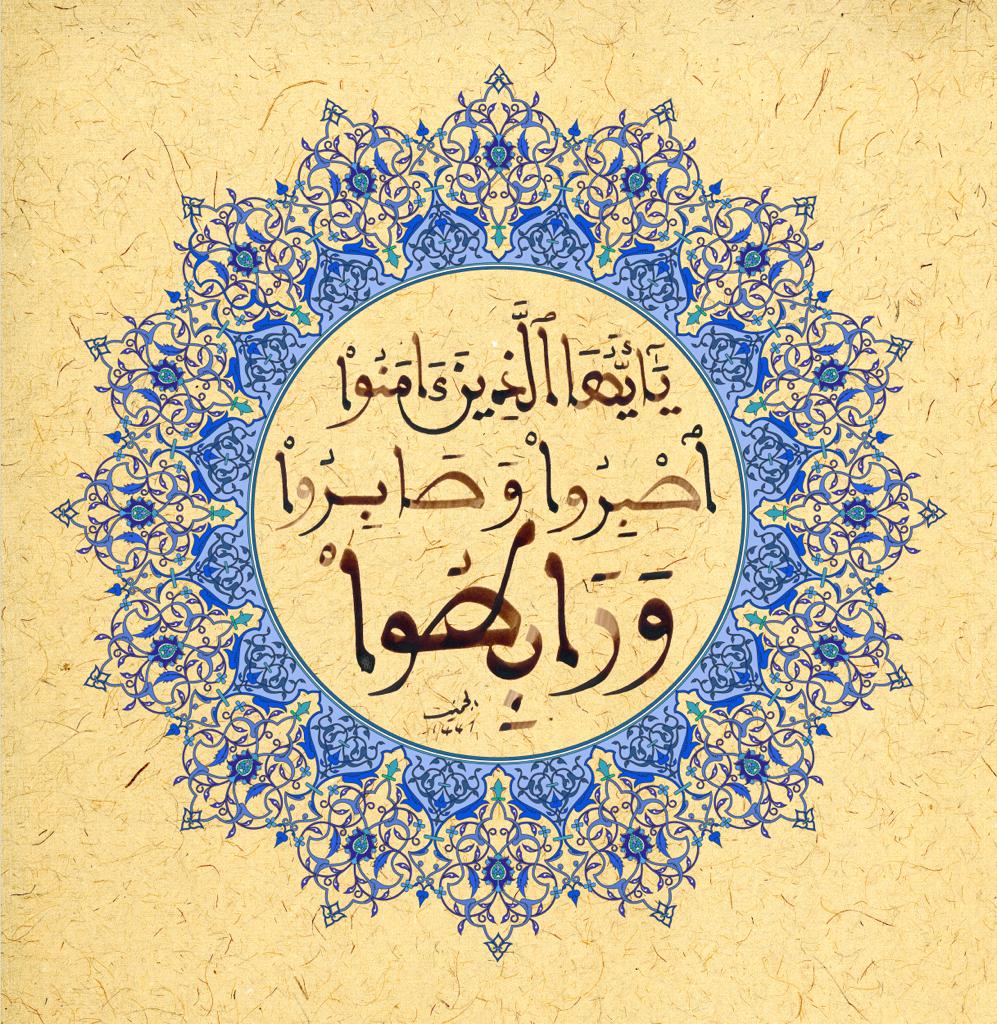 يَٰٓأَيُّهَا ٱلَّذِينَ ءَامَنُوا۟
ٱصْبِرُوا۟ وَصَابِرُوا۟
وَرَابِطُوا۟